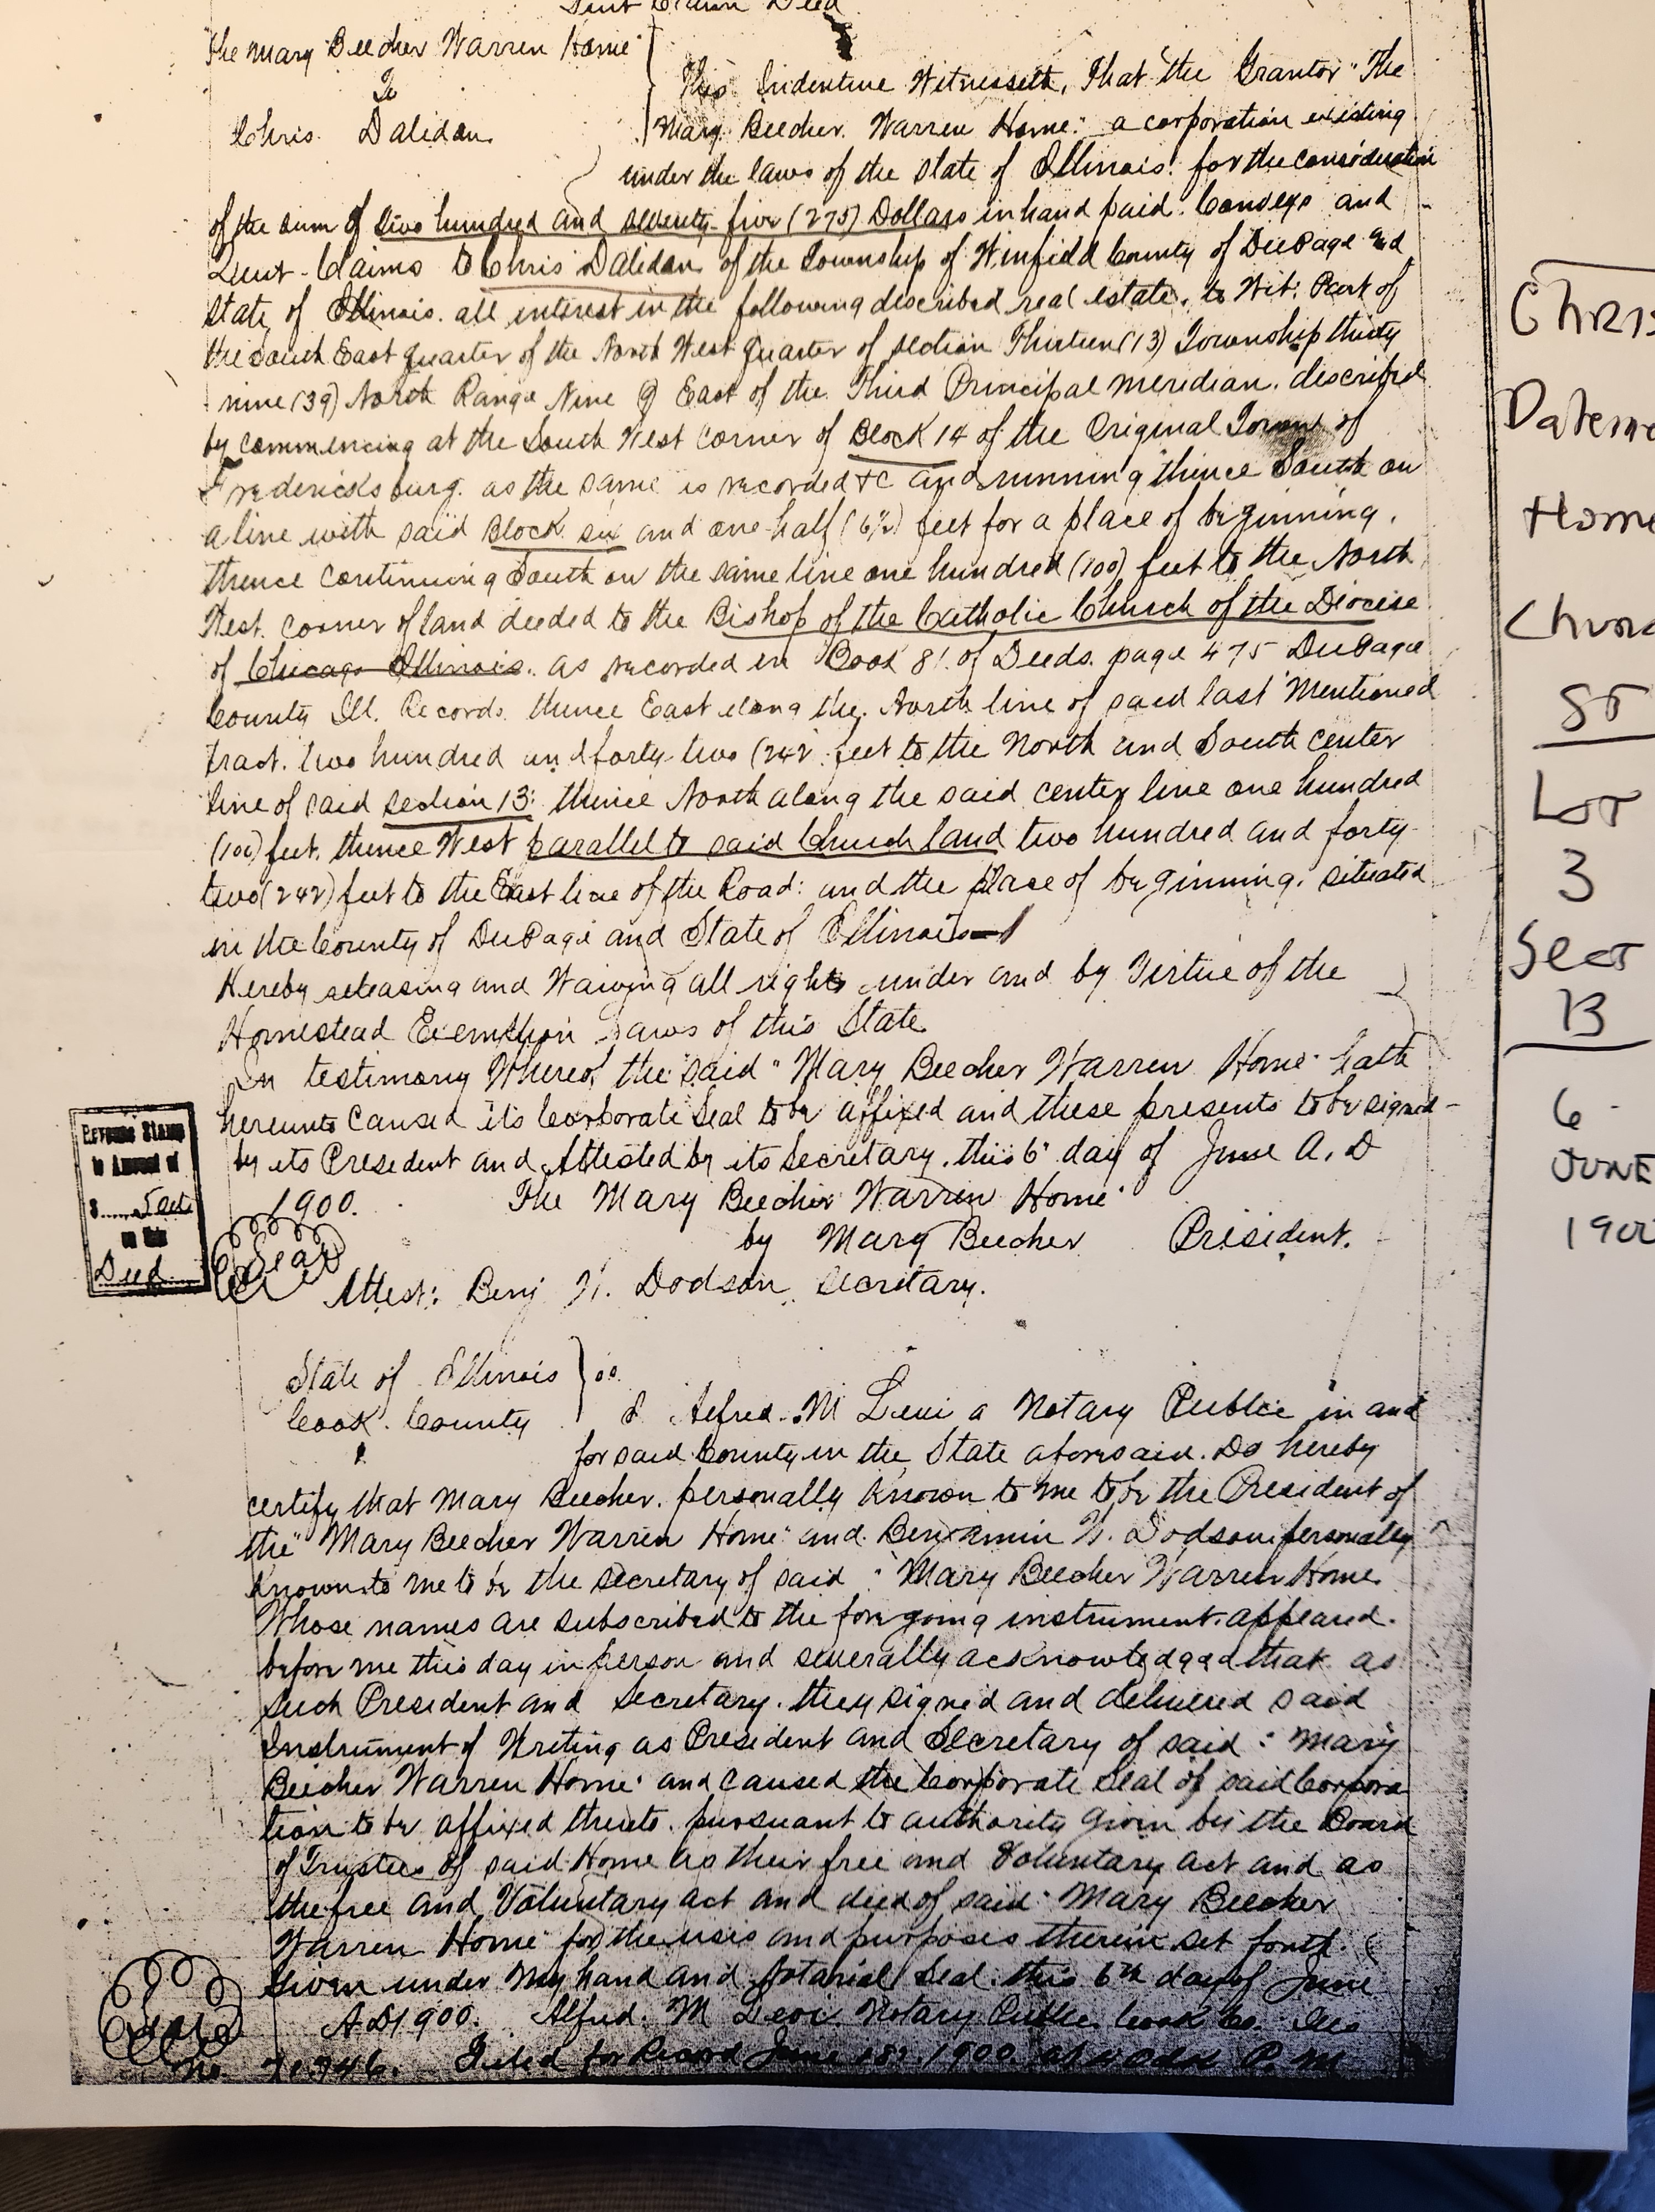 Quit Claim Deed
The Mary Beecher Warren Home
To
Chris Daleidan
This Indenture Witnesseth, That the Grantor "The
Mary Beecher Warren Home" a corporation existing
under the laws of the state of Illinois. for the consideration
of the sum of two hundred and seventy-five (275) Dollars in hand paid. Conveys and
Quit-Claims to Chris Daleidan of the Township of Winfield County of DuPage and
State of Illinois. all interest in the following described real estate. to Wit: Part of
the South East quarter of the North West quarter of section Thirteen (13) Township thirty
nine (39) North Range Nine 9 East of the Third Principal Meridian. described
by commencing at the South West corner of Block 14 of the Original Town of
Fredericksburg. as the same is recorded &c and running thence South on
a line with said Block six and one-half (6½) feet for a place of beginning.
thence continuing South on the same line one hundred (100) feet to the North
West. corner of land deeded to the Bishop of the Catholic Church of the Diocese
of Chicago Illinois. as recorded in Book 81 of Deeds. page 475 DuPage
County Ill. Records. thence East along the North line of said last Mentioned
tract. two hundred and forty-two (242 feet to the North and South center
line of said section 13: thence North along the said center line one hundred
(100) feet. thence West parallel to said Church land two hundred and forty-
two (242) feet to the East line of the Road: and the place of beginning. situated
in the County of DuPage and State of Illinois
Hereby releasing and Waiving all rights under and by Virtue of the
Homestead Exemption Laws of this State
In testimony Whereof, the said "Mary Beecher Warren Home" hath
hereunto caused its Corporate Seal to be affixed and these presents to be signed-
by its President and Attested by its Secretary, this 6" day of June A. D
1900. The Mary Beecher Warren Home"
by Mary Beecher President.
Seal
Attest: Benj W. Dodson, Secretary.
Revenue Stamp
to Amount of
$ 50ct
on this
Deed
State of Illinois } ss.
Cook County
I Alfred. M Levi a Notary Public in and
for said County in the State aforesaid. Do hereby
certify that Mary Beecher. personally known to me to be the President of
the "Mary Beecher Warren Home" and Benjamin W. Dodson personally
known to me to be the secretary of said "Mary Beecher Warren Home
Whose names are subscribed to the foregoing instrument. appeared.
before me this day in person and severally acknowledged that as
such President and Secretary. they signed and delivered said
Instrument of Writing as President and Secretary of said "Mary
Beecher Warren Home" and caused the Corporate Seal of said Corpora
tion to be affixed thereto. pursuant to authority given by the Board
of Trustees of said Home as their free and Voluntary act and as
the free and Voluntary act and deed of said "Mary Beecher
Warren Home" for the uses and purposes therein set forth.
Given under My hand and Notarial Seal. this 6th day of June
AD 1900. Alfred. M Levi Notary Public Cook Co. Ills
Seal
No. Filed for Record June 18, 1900. at P. M
Chris
Home
ST
LOT
3
Sect
13
6
JUNE